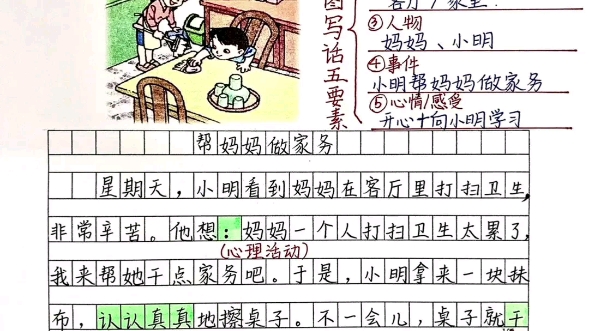 客厅/家里
图写话五要素
③人物
妈妈、小明
④事件
小明帮妈妈做家务
⑤心情/感受
开心+向小明学习
帮妈妈做家务
星期天，小明看到妈妈在客厅里打扫卫生，
非常辛苦。他想：妈妈一个人打扫卫生太累了，
(心理活动)
我来帮她干点家务吧。于是，小明拿来一块抹
布，认认真真地擦桌子。不一会儿，桌子就干